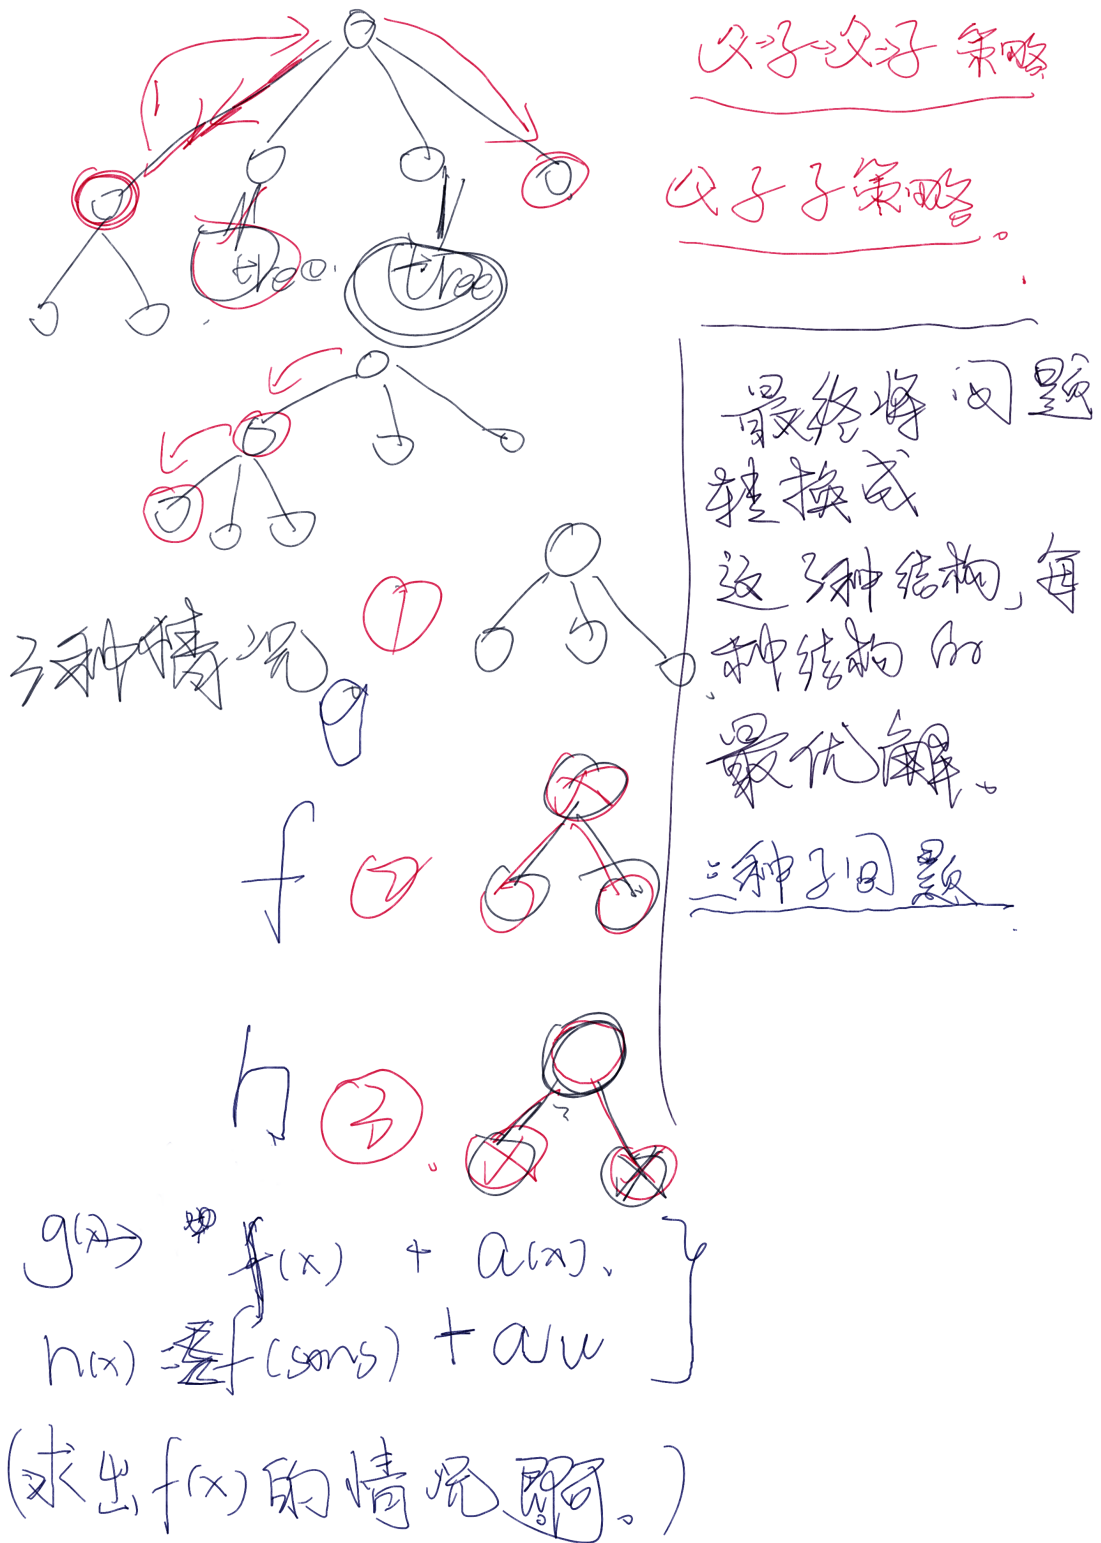 父→子→父→子 策略
父子子策略。
tree
tree
最终将问题
转换成
这3种结构,每
种结构的
最优解。
三种子问题
3种情况
①
g
f ②
h ③
g(x) → f(x) + a(x).
h(x) = f(sons) + a(x)
(求出f(x)的情况即可。)